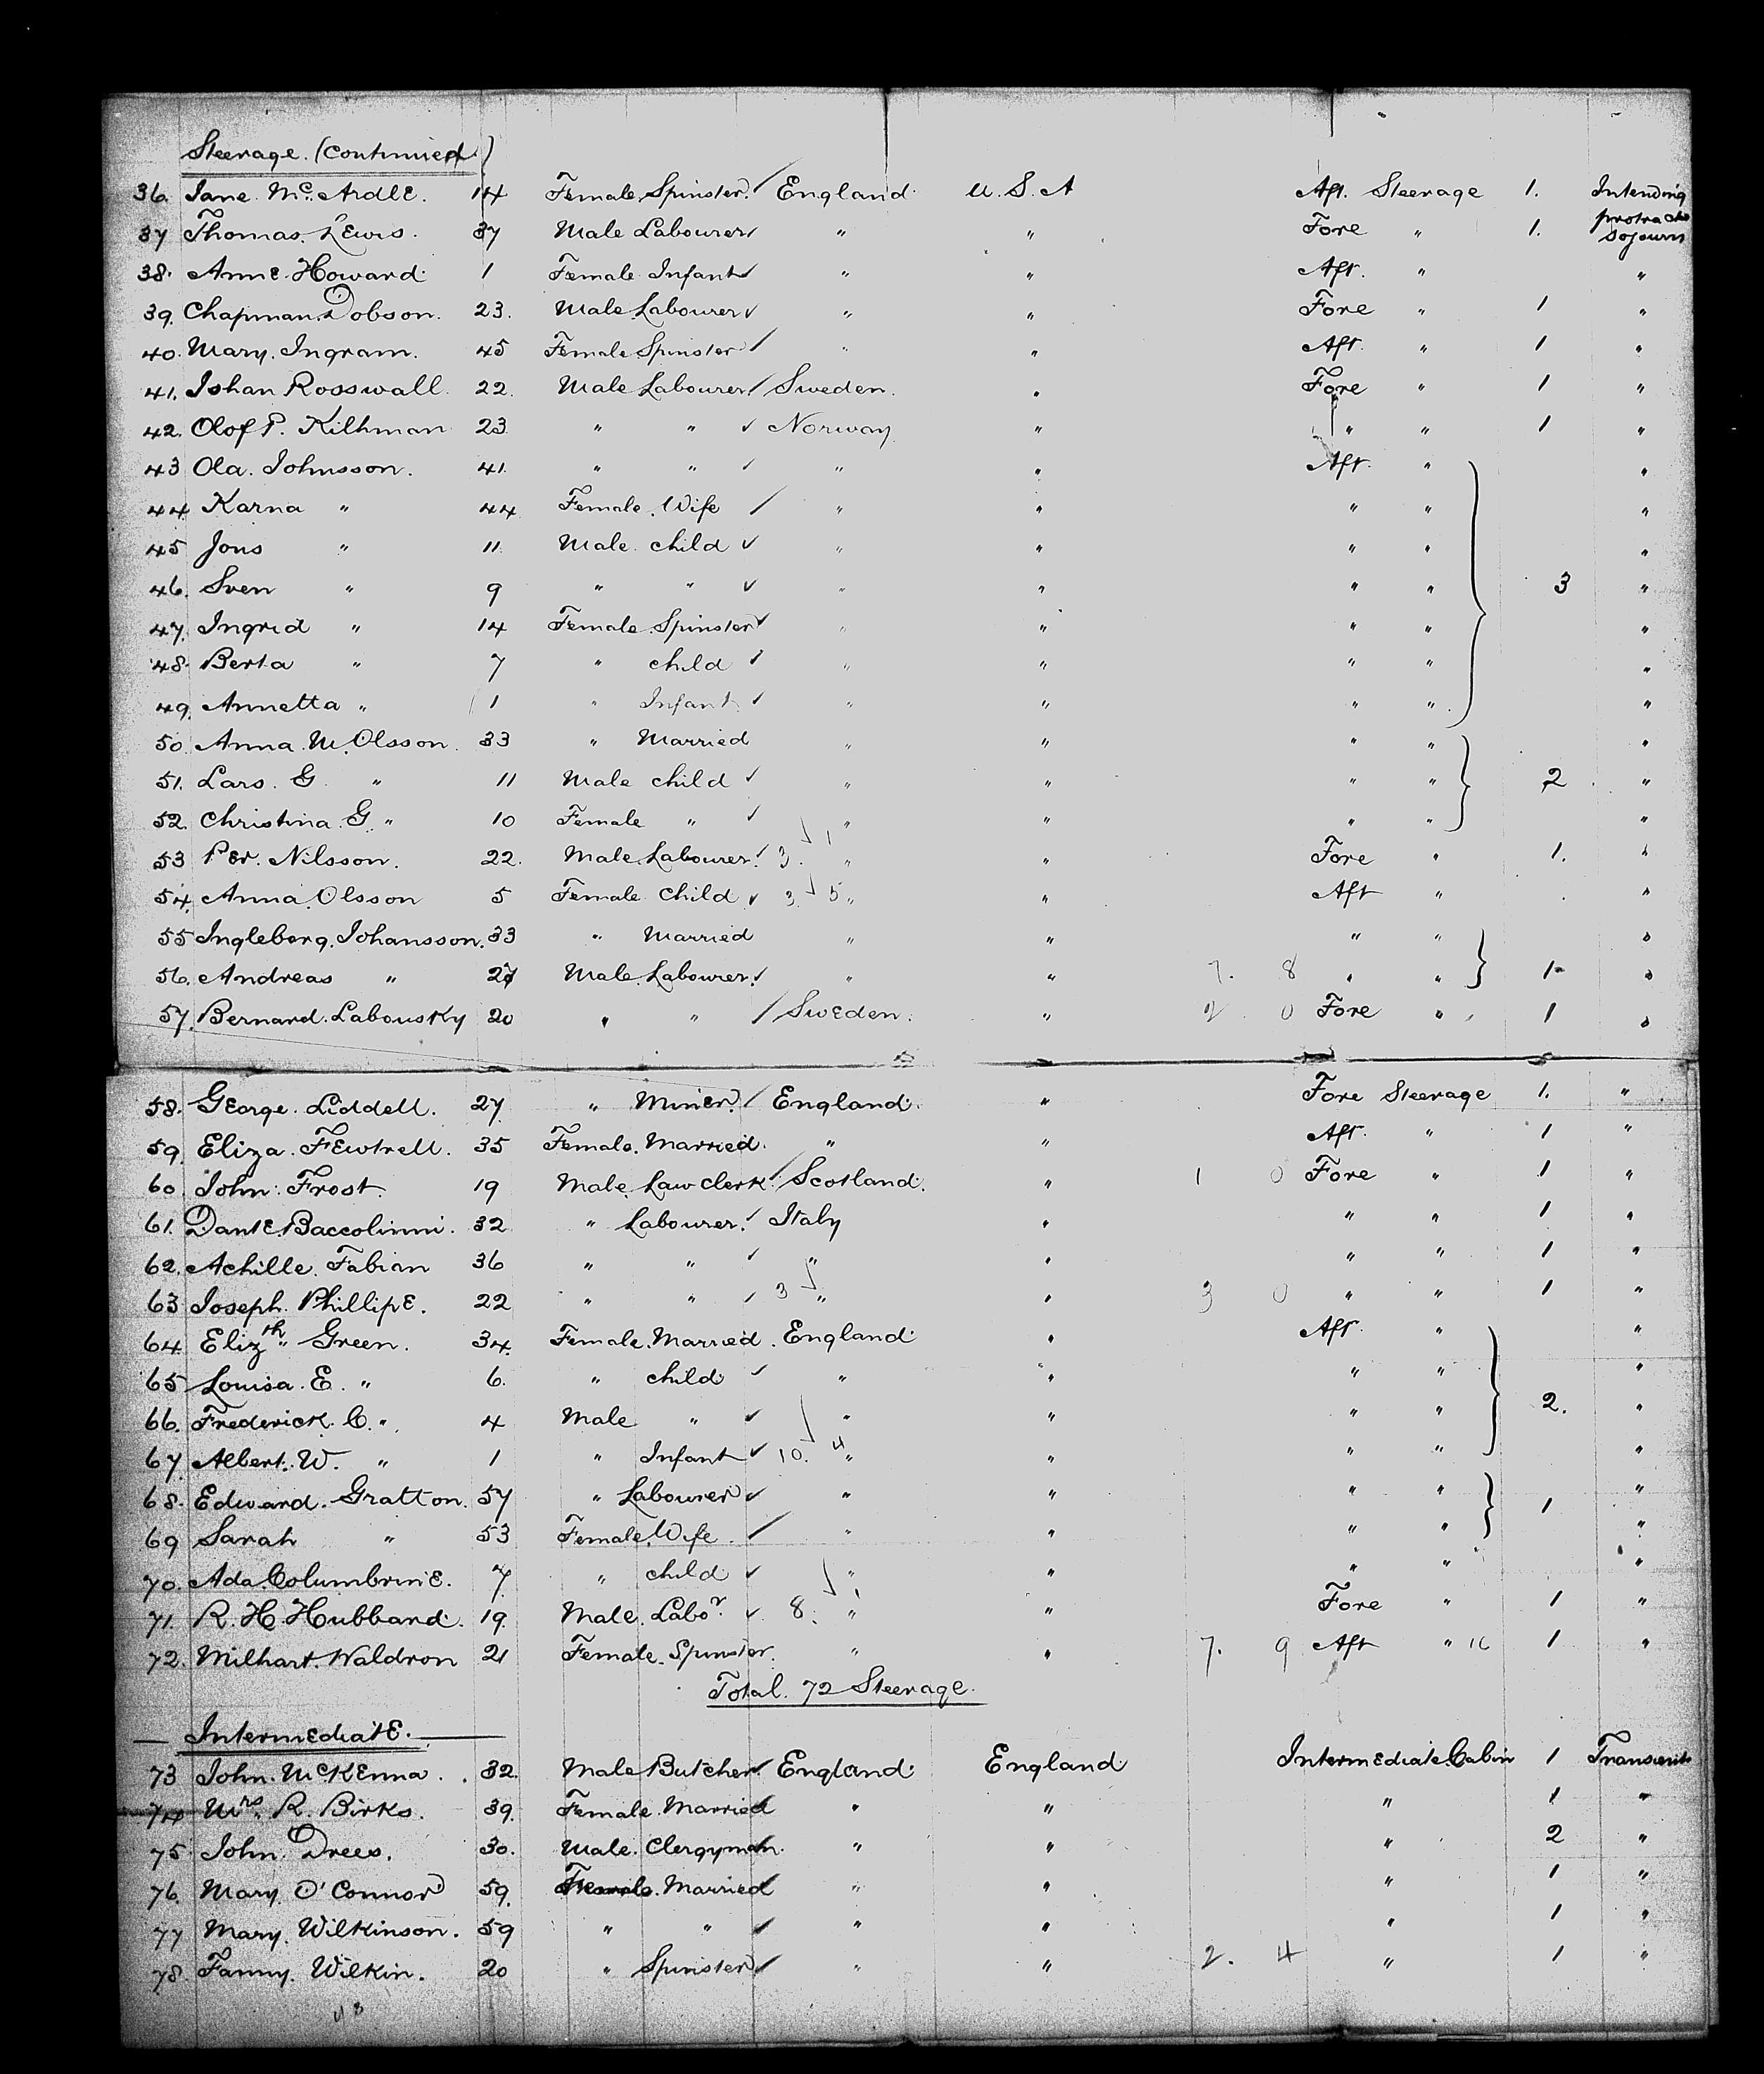 Steerage. (continued)
36. Jane. Mc.Ardle. 14 Female Spinster. England. U.S.A Aft. Steerage 1. Intending
37 Thomas. Lewis. 37 Male Labourer " " Fore " 1. protracted sojourn
38. Anne. Howard. 1 Female Infant " " Aft. " "
39. Chapman. Dobson. 23. Male Labourer " " Fore " 1 "
40. Mary. Ingram. 45 Female Spinster " " Aft. " 1 "
41. Johan Rosswall 22. Male Labourer Sweden. " Fore " 1 "
42. Olof P. Kilhman 23 " " Norway " " " 1 "
43 Ola. Johnsson. 41. " " " " Aft. " "
44 Karna " 44 Female. Wife " " " " "
45 Jons " 11. Male. child " " " " "
46. Sven " 9 " " " " " " 3 "
47. Ingrid " 14 Female. Spinster " " " " "
48. Berta " 7 " child " " " " "
49. Annetta " 1 " Infant " " " " "
50. Anna. M. Olsson. 33 " Married " " " " "
51. Lars. G " 11 Male child " " " " 2 "
52. Christina. G. " 10 Female " " " " " "
53 Per. Nilsson. 22. Male. Labourer. 3. 1 " " Fore " 1. "
54. Anna. Olsson 5 Female child 3. 5 " " Aft " "
55 Ingleborg. Johansson. 33 " Married " " " " "
56. Andreas " 27 Male. Labourer. " " 7. 8 " " 1 "
57. Bernard. Labousky 20 " " Sweden. " 2 0 Fore " 1 "
58. George. Liddell. 27 " Miner. England. " Fore Steerage 1. "
59. Eliza. Fewtrell. 35 Female. Married. " " Aft. " 1 "
60. John. Frost. 19 Male. Law clerk. Scotland. " 1 0 Fore " 1 "
61. Dante. Baccolinni. 32 " Labourer. Italy " " " 1 "
62. Achille. Fabian 36 " " " " " " 1 "
63 Joseph. Phillipe. 22 " " 3 " " 3 0 " " 1 "
64. Elizth. Green. 34. Female. Married. England. " Aft. " "
65 Louisa. E. " 6. " child " " " " "
66. Frederick. C. " 4 Male " " " " " 2. "
67. Albert. W. " 1 " Infant 10. 4 " " " " "
68. Edward. Gratton. 57 " Labourer " " " " 1 "
69 Sarah " 53 Female. Wife. " " " " "
70. Ada. Columbrine. 7 " child " " " " "
71. R. H. Hubbard. 19. Male. Labor. 8. 1 " " Fore " 1 "
72. Milhart. Waldron 21 Female. Spinster. " " 7. 9 Aft " 16 1 "
Total. 72 Steerage.
Intermediate.
73 John. McKenna. 32. Male Butcher. England. England Intermediate. Cabin 1 Transient
74 Mrs. R. Birks. 39. Female. Married " " " 1 "
75 John. Drees. 30. Male. Clergyman. " " " 2 "
76. Mary. O'Connor 59. Female. Married " " " 1 "
77 Mary. Wilkinson. 59 " " " " " 1 "
78. Fanny. Wilkin. 20 " Spinster " " 2. 4 " 1 "